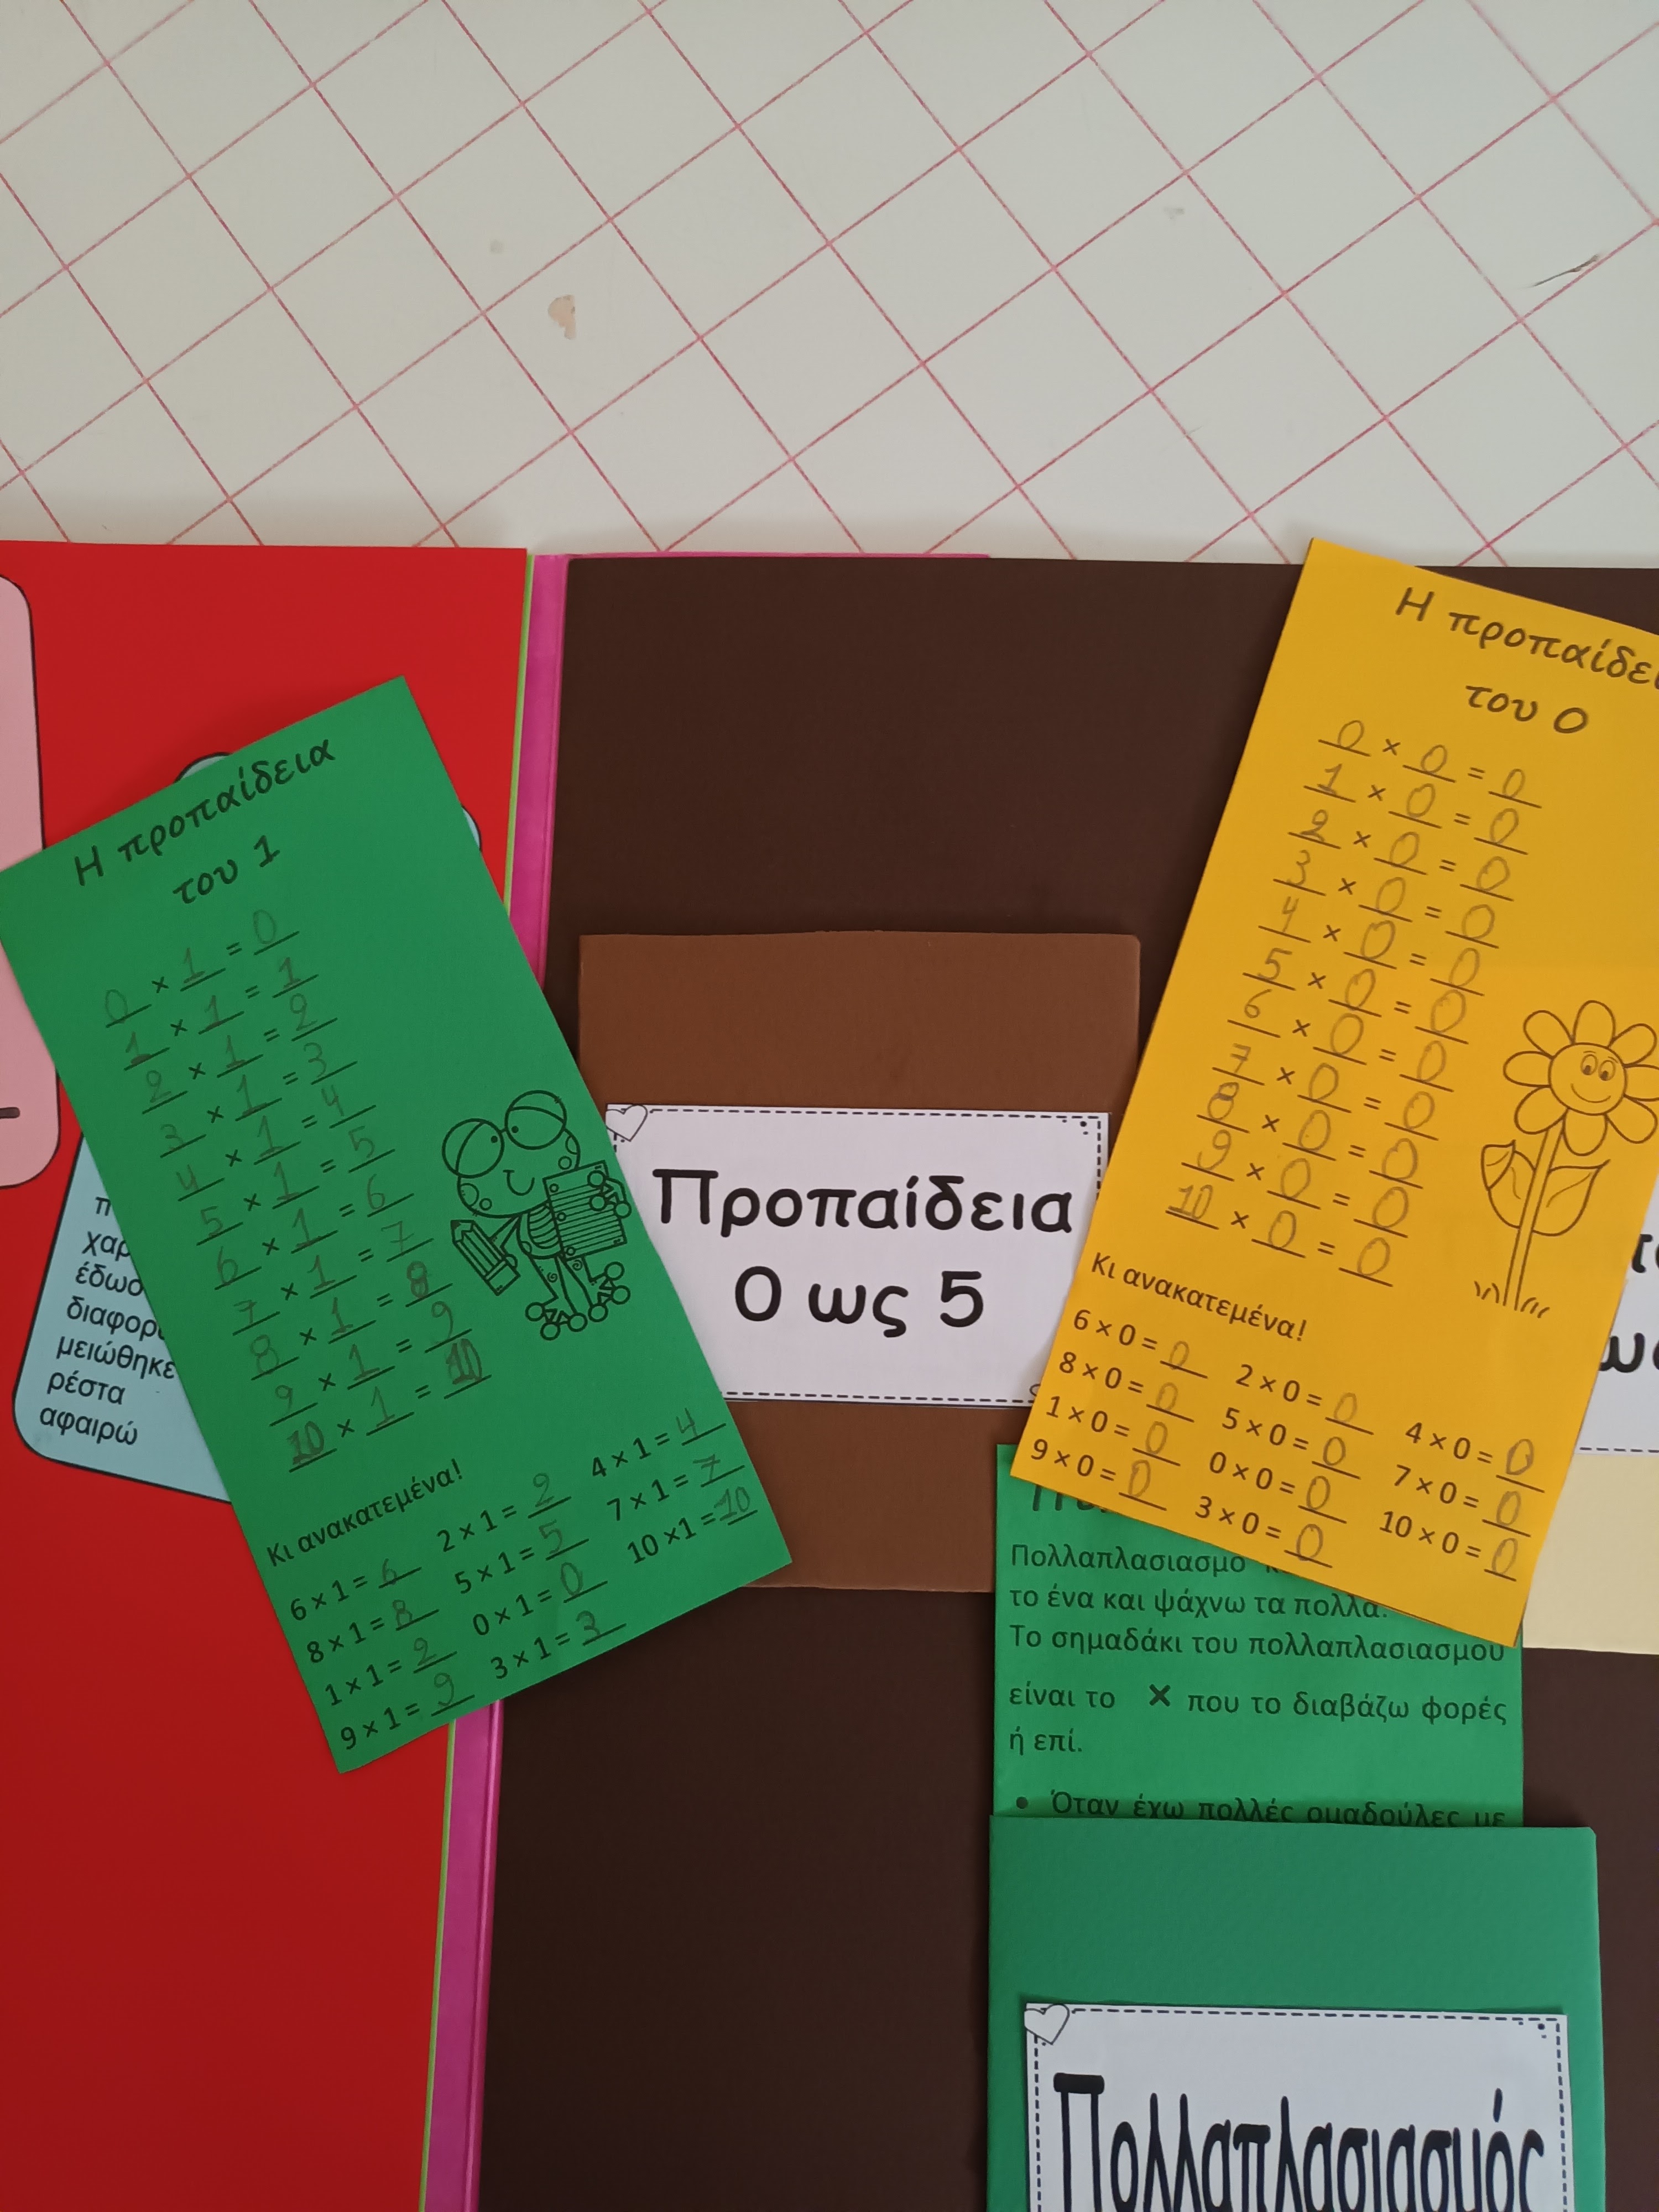 Η προπαίδεια
του 1
0 × 1 = 0
1 × 1 = 1
2 × 1 = 2
3 × 1 = 3
4 × 1 = 4
5 × 1 = 5
6 × 1 = 6
7 × 1 = 7
8 × 1 = 8
9 × 1 = 9
10 × 1 = 10
Κι ανακατεμένα!
6 × 1 = 6 2 × 1 = 2 4 × 1 = 4
8 × 1 = 8 5 × 1 = 5 7 × 1 = 7
1 × 1 = 2 0 × 1 = 0 10 × 1 = 10
9 × 1 = 9 3 × 1 = 3
μειώθηκε
ρέστα
αφαιρώ
Προπαίδεια
0 ως 5
Η
του 0
0 × 0 = 0
1 × 0 = 0
2 × 0 = 0
3 × 0 = 0
4 × 0 = 0
5 × 0 = 0
6 × 0 = 0
7 × 0 = 0
8 × 0 = 0
9 × 0 = 0
10 × 0 = 0
Κι ανακατεμένα!
6 × 0 = 0 2 × 0 = 0 4 × 0 = 0
8 × 0 = 0 5 × 0 = 0 7 × 0 = 0
1 × 0 = 0 0 × 0 = 0 10 × 0 = 0
9 × 0 = 0 3 × 0 = 0
Πολλαπλασιασμο
το ένα και ψάχνω τα πολλά.
Το σημαδάκι του πολλαπλασιασμού
είναι το × που το διαβάζω φορές
ή επί.
• Όταν έχω πολλές ομαδούλες με
Πολλαπλασιασμός